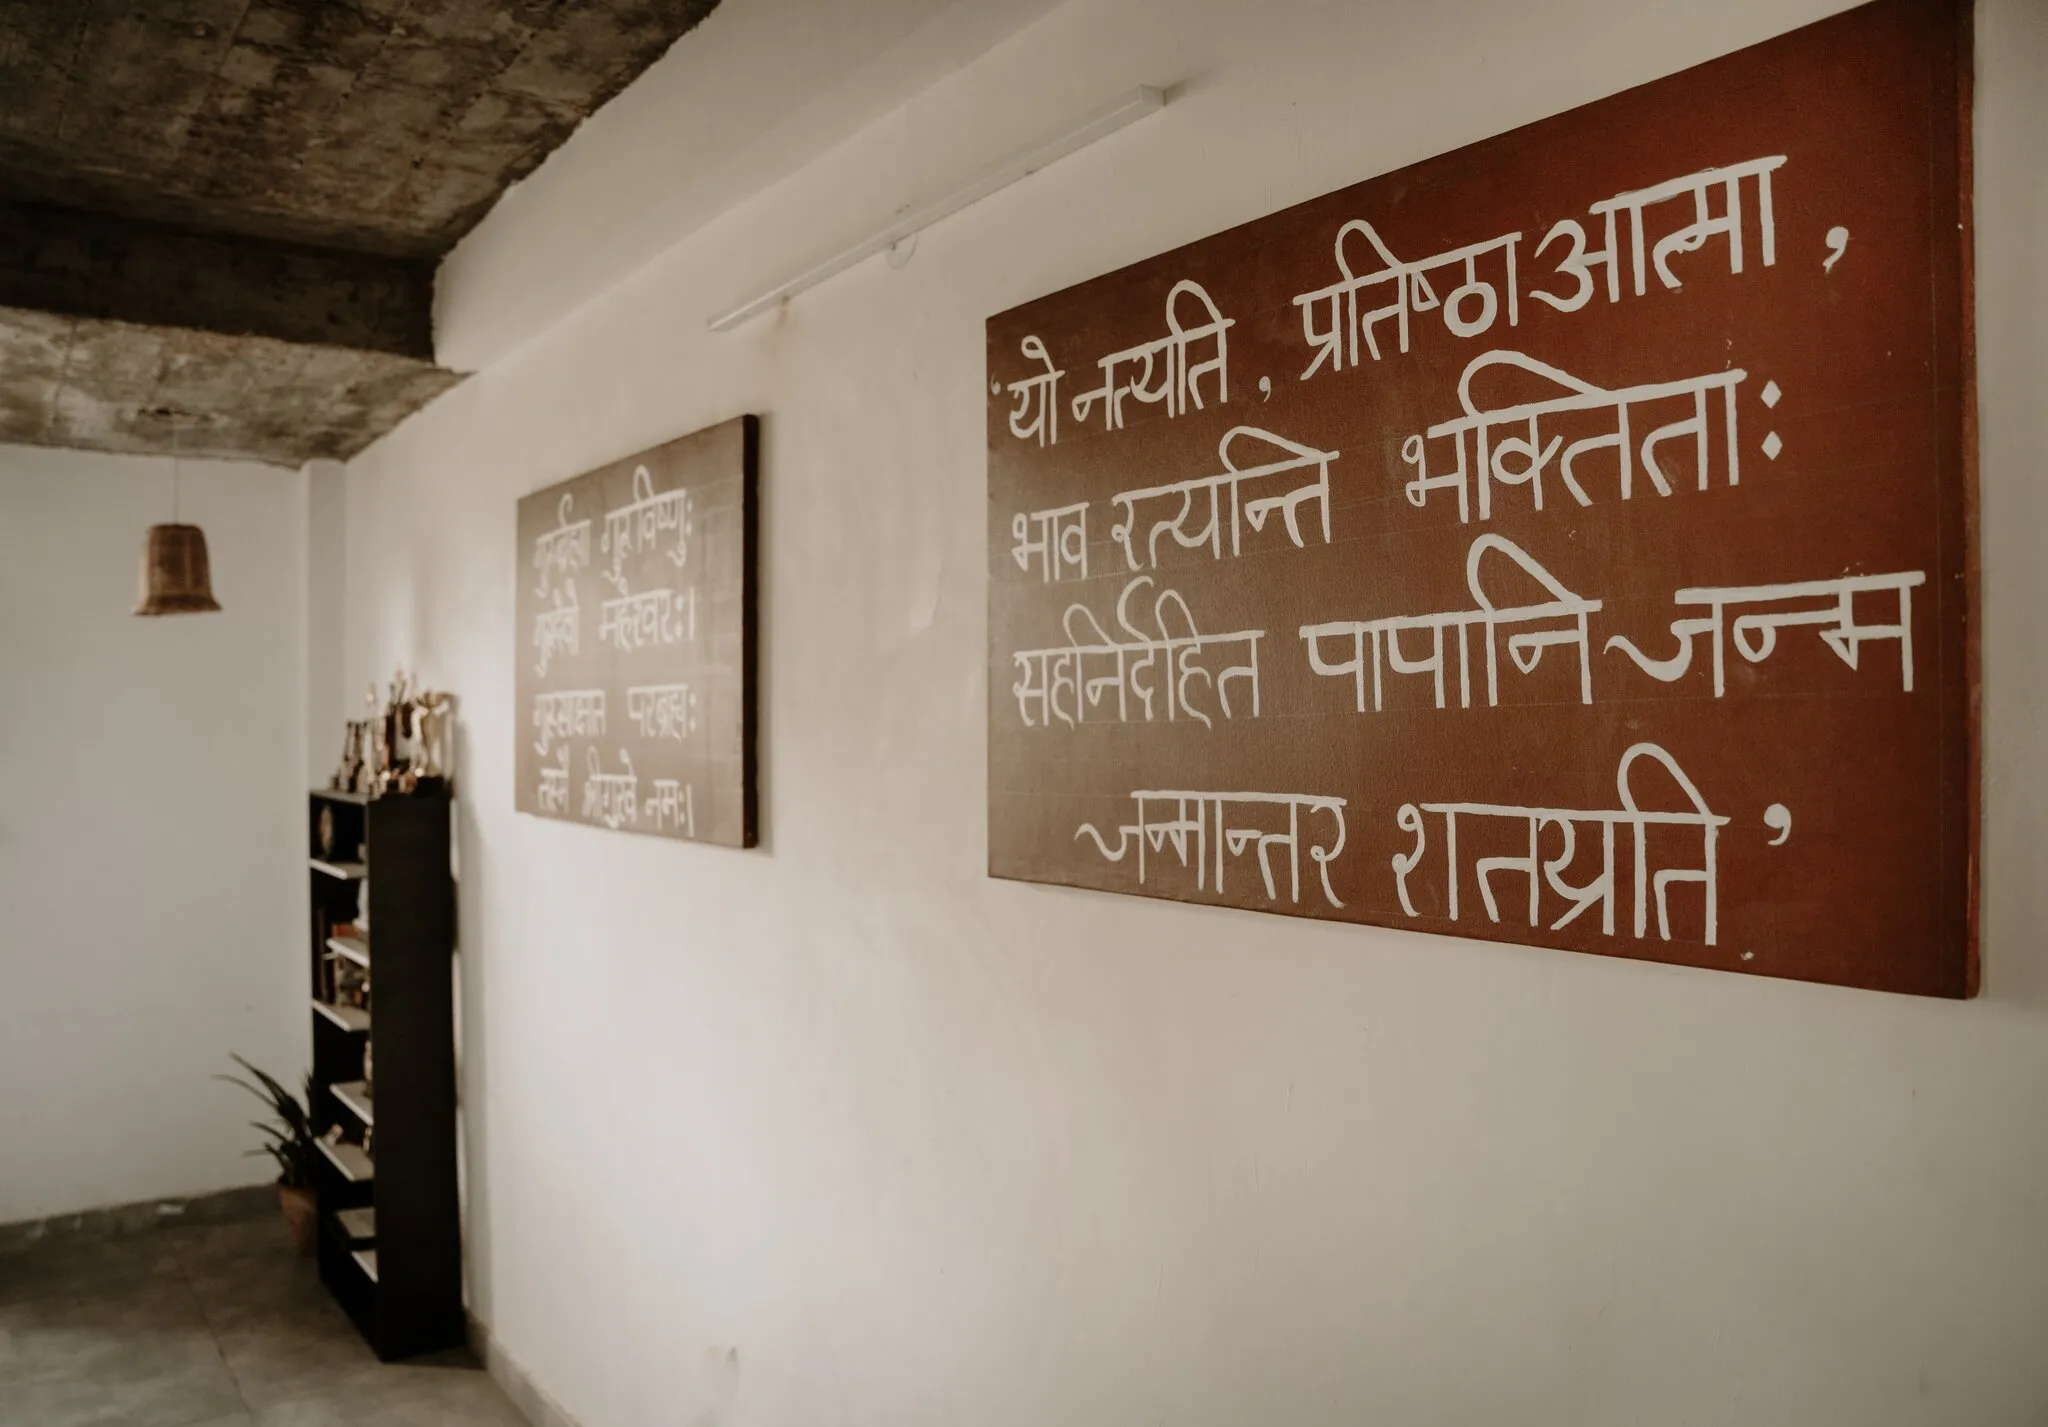 गुरुर्ब्रह्मा गुरुर्विष्णुः
गुरुर्देवो महेश्वरः।
गुरुसाक्षात परब्रह्मः
तस्मै श्रीगुरुवे नमः।
‘यो नत्यति, प्रतिष्ठा आत्मा,
भाव रत्यन्ति भक्तिताः
सहनिर्दहित पापानि जन्म
जन्मान्तर शतय्रति’